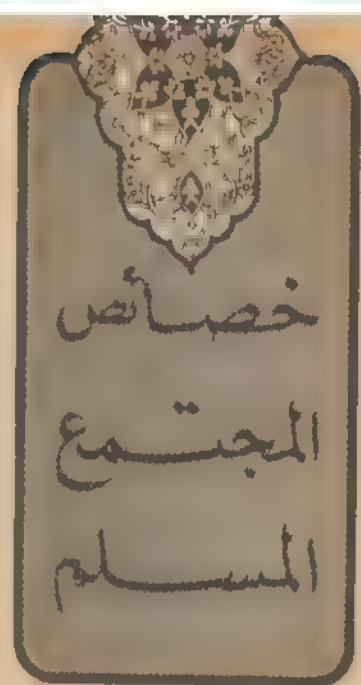 خصائص
المجتمع
المسلم